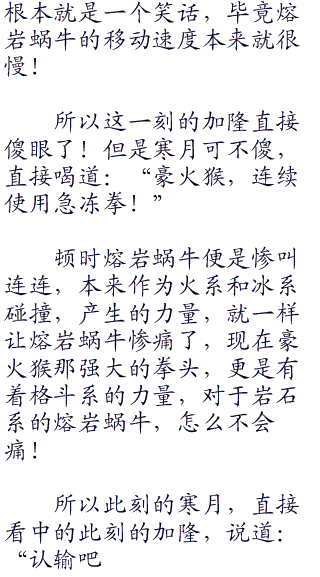 根本就是一个笑话，毕竟熔
岩蜗牛的移动速度本来就很
慢！
所以这一刻的加隆直接
傻眼了！但是寒月可不傻，
直接喝道：“豪火猴，连续
使用急冻拳！”
顿时熔岩蜗牛便是惨叫
连连，本来作为火系和冰系
碰撞，产生的力量，就一样
让熔岩蜗牛惨痛了，现在豪
火猴那强大的拳头，更是有
着格斗系的力量，对于岩石
系的熔岩蜗牛，怎么不会
痛！
所以此刻的寒月，直接
看中的此刻的加隆，说道：
“认输吧